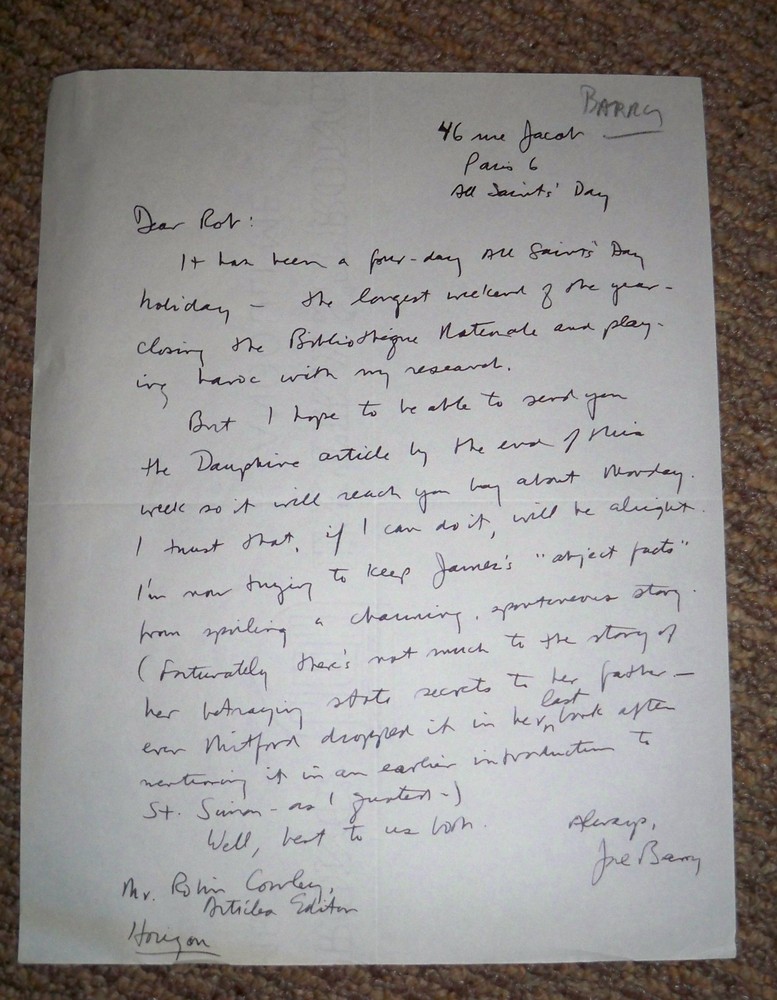 BARRY
46 rue Jacob
Paris 6
All Saints' Day
Dear Rob:
It has been a four-day All Saints' Day
holiday — the longest weekend of the year —
closing the Bibliothèque Nationale and play-
ing havoc with my research.
But I hope to be able to send you
the Dauphine article by the end of this
week so it will reach you by about Monday.
I trust that, if I can do it, will be alright.
I'm now trying to keep James's "abject facts"
from spoiling a charming, spontaneous story.
(Fortunately there's not much to the story of
her betraying state secrets to her father —
even Mitford dropped it in her last book after
mentioning it in an earlier introduction to
St. Simon - as I quoted -)
Well, best to us both.
Always,
Joe Barry
Mr. Robin Cowley,
Articles Editor
Horizon